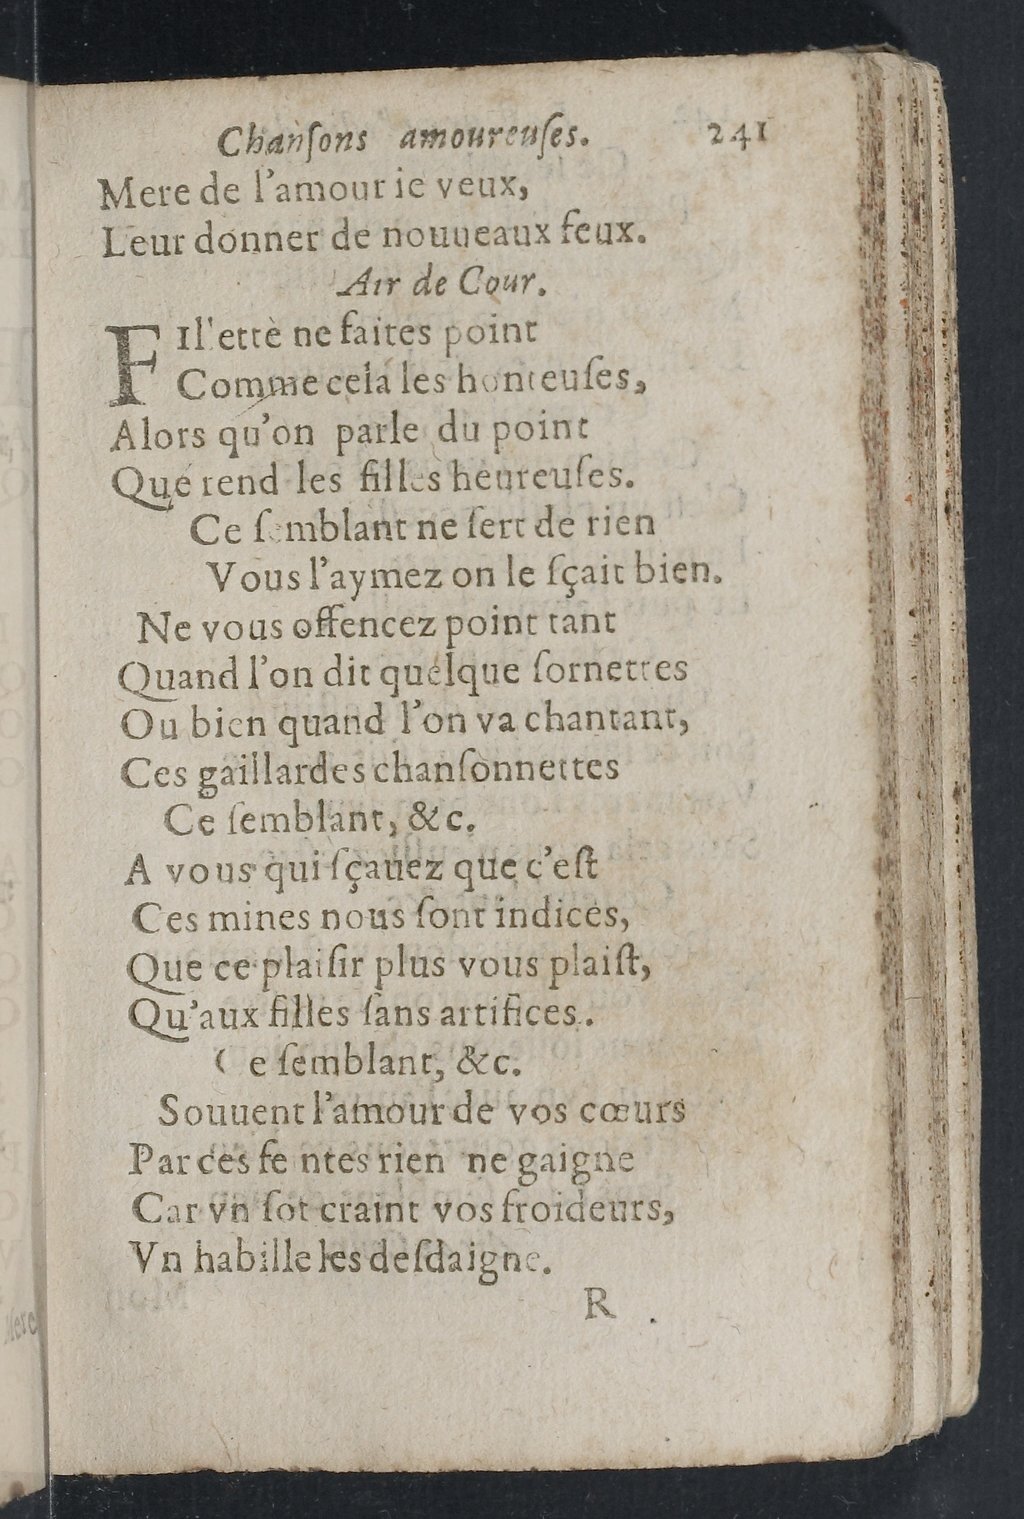 Chanſons amoureuſes. 241
Mere de l'amour ie veux,
Leur donner de nouueaux feux.
Air de Cour.
FIllette ne faites point
Comme cela les honteuſes,
Alors qu'on parle du point
Que rend les filles heureuſes.
Ce ſemblant ne ſert de rien
Vous l'aymez on le ſçait bien.
Ne vous offencez point tant
Quand l'on dit quelque ſornettes
Ou bien quand l'on va chantant,
Ces gaillardes chanſonnettes
Ce ſemblant, &c.
A vous qui ſçauez que c'eſt
Ces mines nous ſont indices,
Que ce plaiſir plus vous plaiſt,
Qu'aux filles ſans artifices.
Ce ſemblant, &c.
Souuent l'amour de vos cœurs
Par ces fe ntes rien ne gaigne
Car vn ſot craint vos froideurs,
Vn habille les deſdaigne.
R